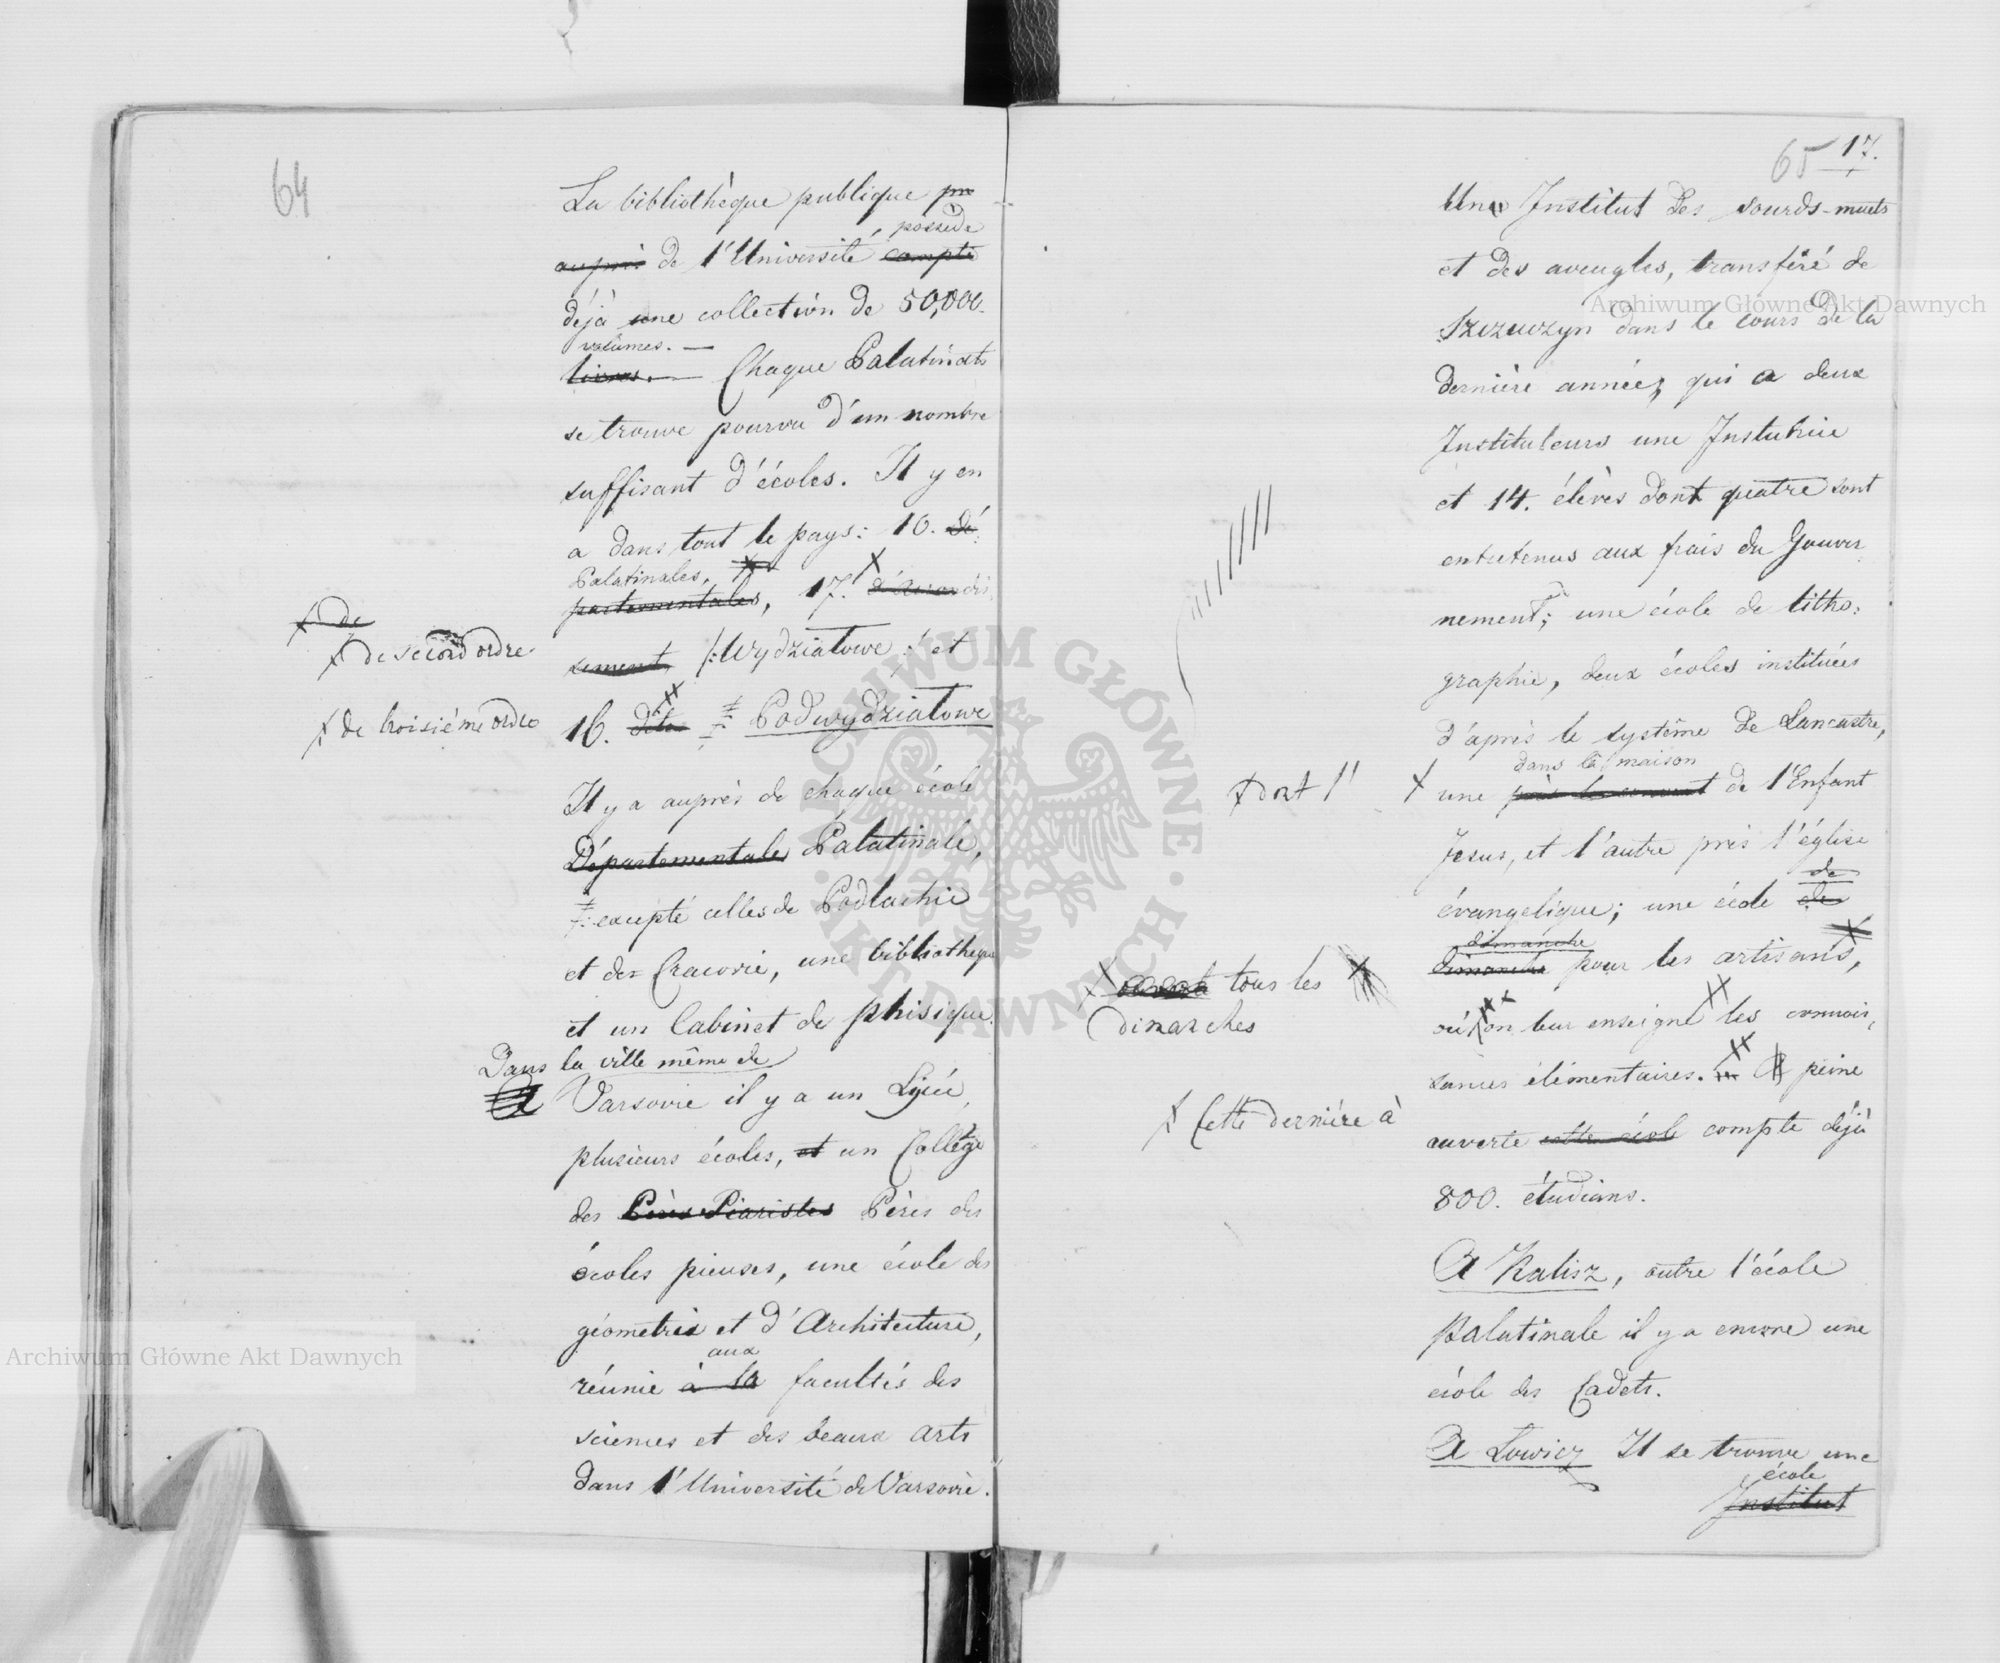 64
La bibliothèque publique
possede
auprès de l'Université compte
déjà une collection de 50,000.
volumes. —
livres. — Chaque Palatinats
se trouve pourvu d'un nombre
suffisant d'écoles. Il y en
a dans tout le pays: 10. dé:
Palatinales,
partementales, 17. d'arrondis
de
de second ordre
sement, /: Wydziałowe :/ et
de troisième ordre
16. dites Podwydziałowe
Il y a auprès de chaque école
Départementale Palatinale,
excepté celles de Podlachie
et de Cracovie, une bibliotheque
et un Cabinet de phisique.
Dans la ville même de
A Varsovie il y a un Lycée,
plusieurs écoles, et un Collège
des Pères Piaristes Pères des
écoles pieuses, une école de
géometrie et d'Architecture,
aux
réunie à la facultés des
sciences et des beaux arts
dans l'Université de Varsovie.
65 17.
Une Institut des sourds-muets
et des aveugles, transféré de
Szczuczyn dans le cours de la
dernière année, qui a deux
Instituteurs une Institutrice
et 14. élèves dont quatre sont
entretenus aux frais du Gouver
nement; une école de litho:
graphie, deux écoles instituées
d'après le système de Lancastre,
dans la maison
dont l'
une près le couvent de l'Enfant
Jesus, et l'autre près l'église
de
évangelique; une école de
dimanche
dimanche pour les artisans,
tous les
dimanches
où on leur enseigne les connois,
sances élémentaires. A peine
Cette dernière à
ouverte cette école compte déjà
800. étudians.
A Kalisz, outre l'école
palatinale il y a encore une
école des Cadets.
A Lowicz Il se trouve une
école
Institut
Archiwum Główne Akt Dawnych
Archiwum Główne Akt Dawnych
ARCHIWUM GŁÓWNE · AKT DAWNYCH ·